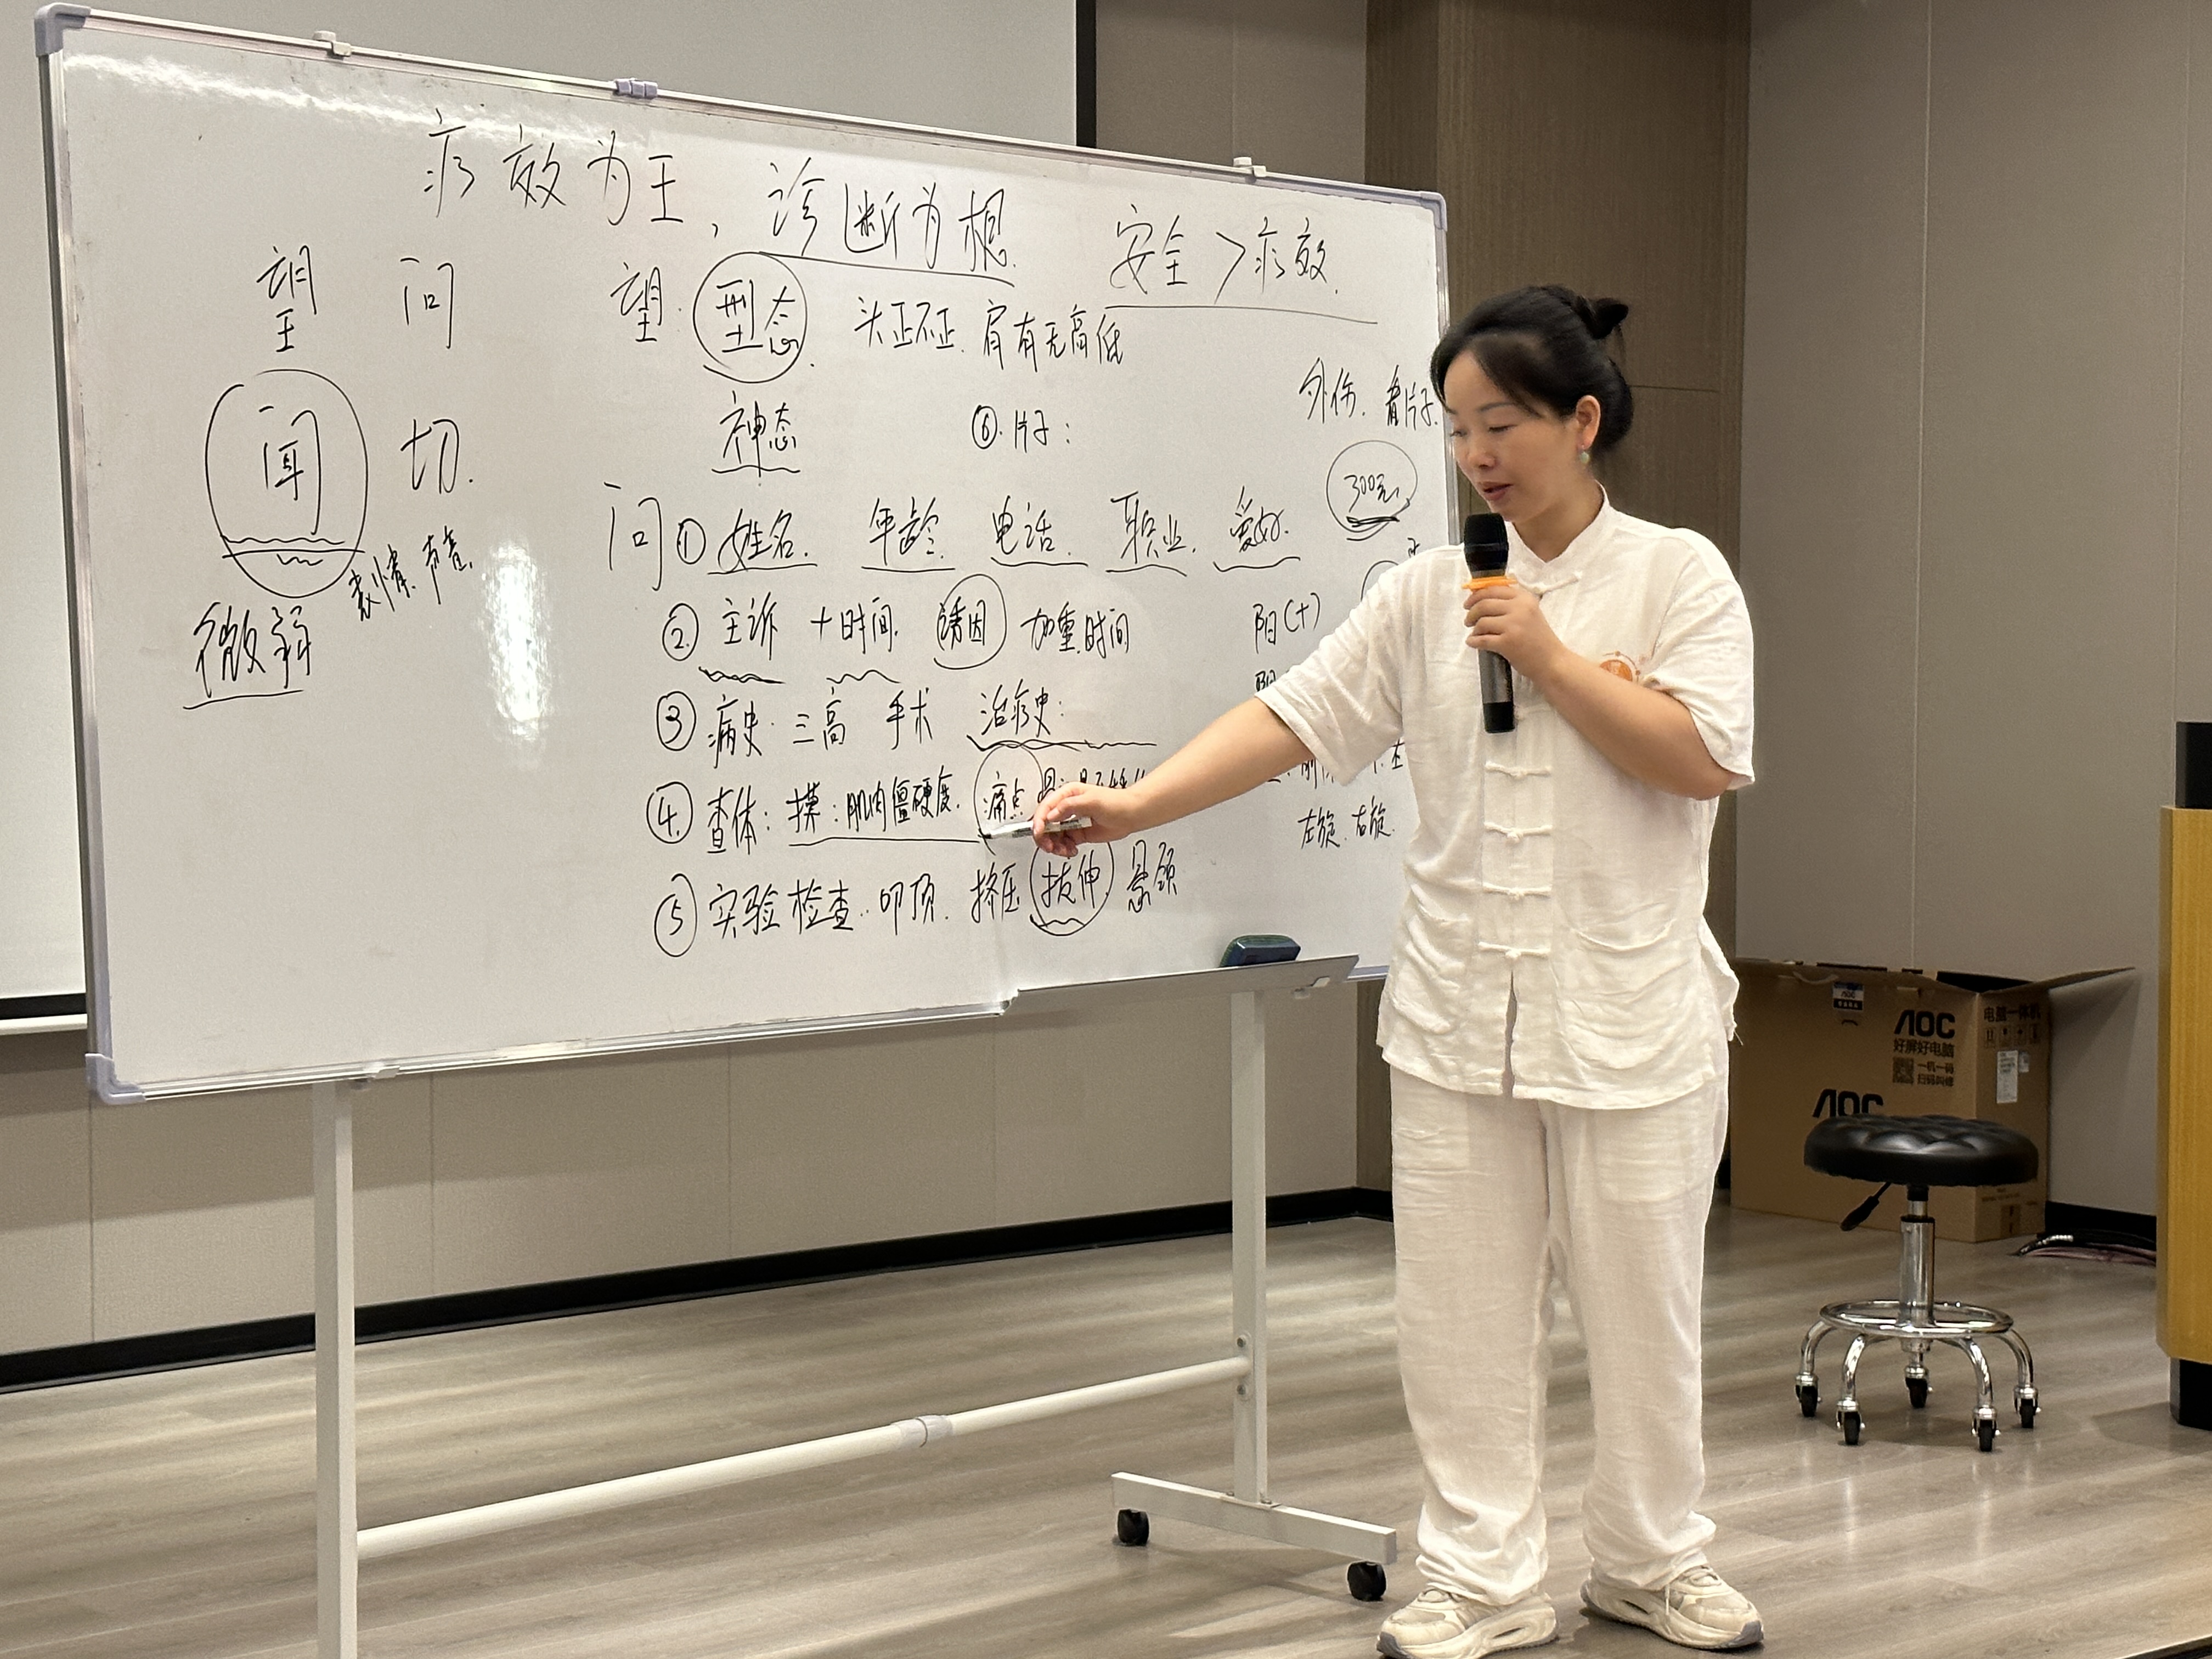 疗效为王，诊断为根. 安全>疗效.
望 问 望. 型态. 头正不正. 肩有无高低
闻 切.
神态 ⑥.片子: 外伤. 看片子.
300元
表情. 声音.
微弱
问 ①姓名. 年龄. 电话. 职业. 爱好.
② 主诉 +时间. 诱因 加重.时间
阳(+)
③ 病史. 三高 手术 治疗史:
④ 查体: 摸: 肌肉僵硬度. 痛点
左旋. 右旋.
⑤ 实验检查.. 叩顶. 挤压 拔伸. 悬颈
AOC
AOC
好屏好电脑
一机一码
扫码叫修
电脑一体机
AOC